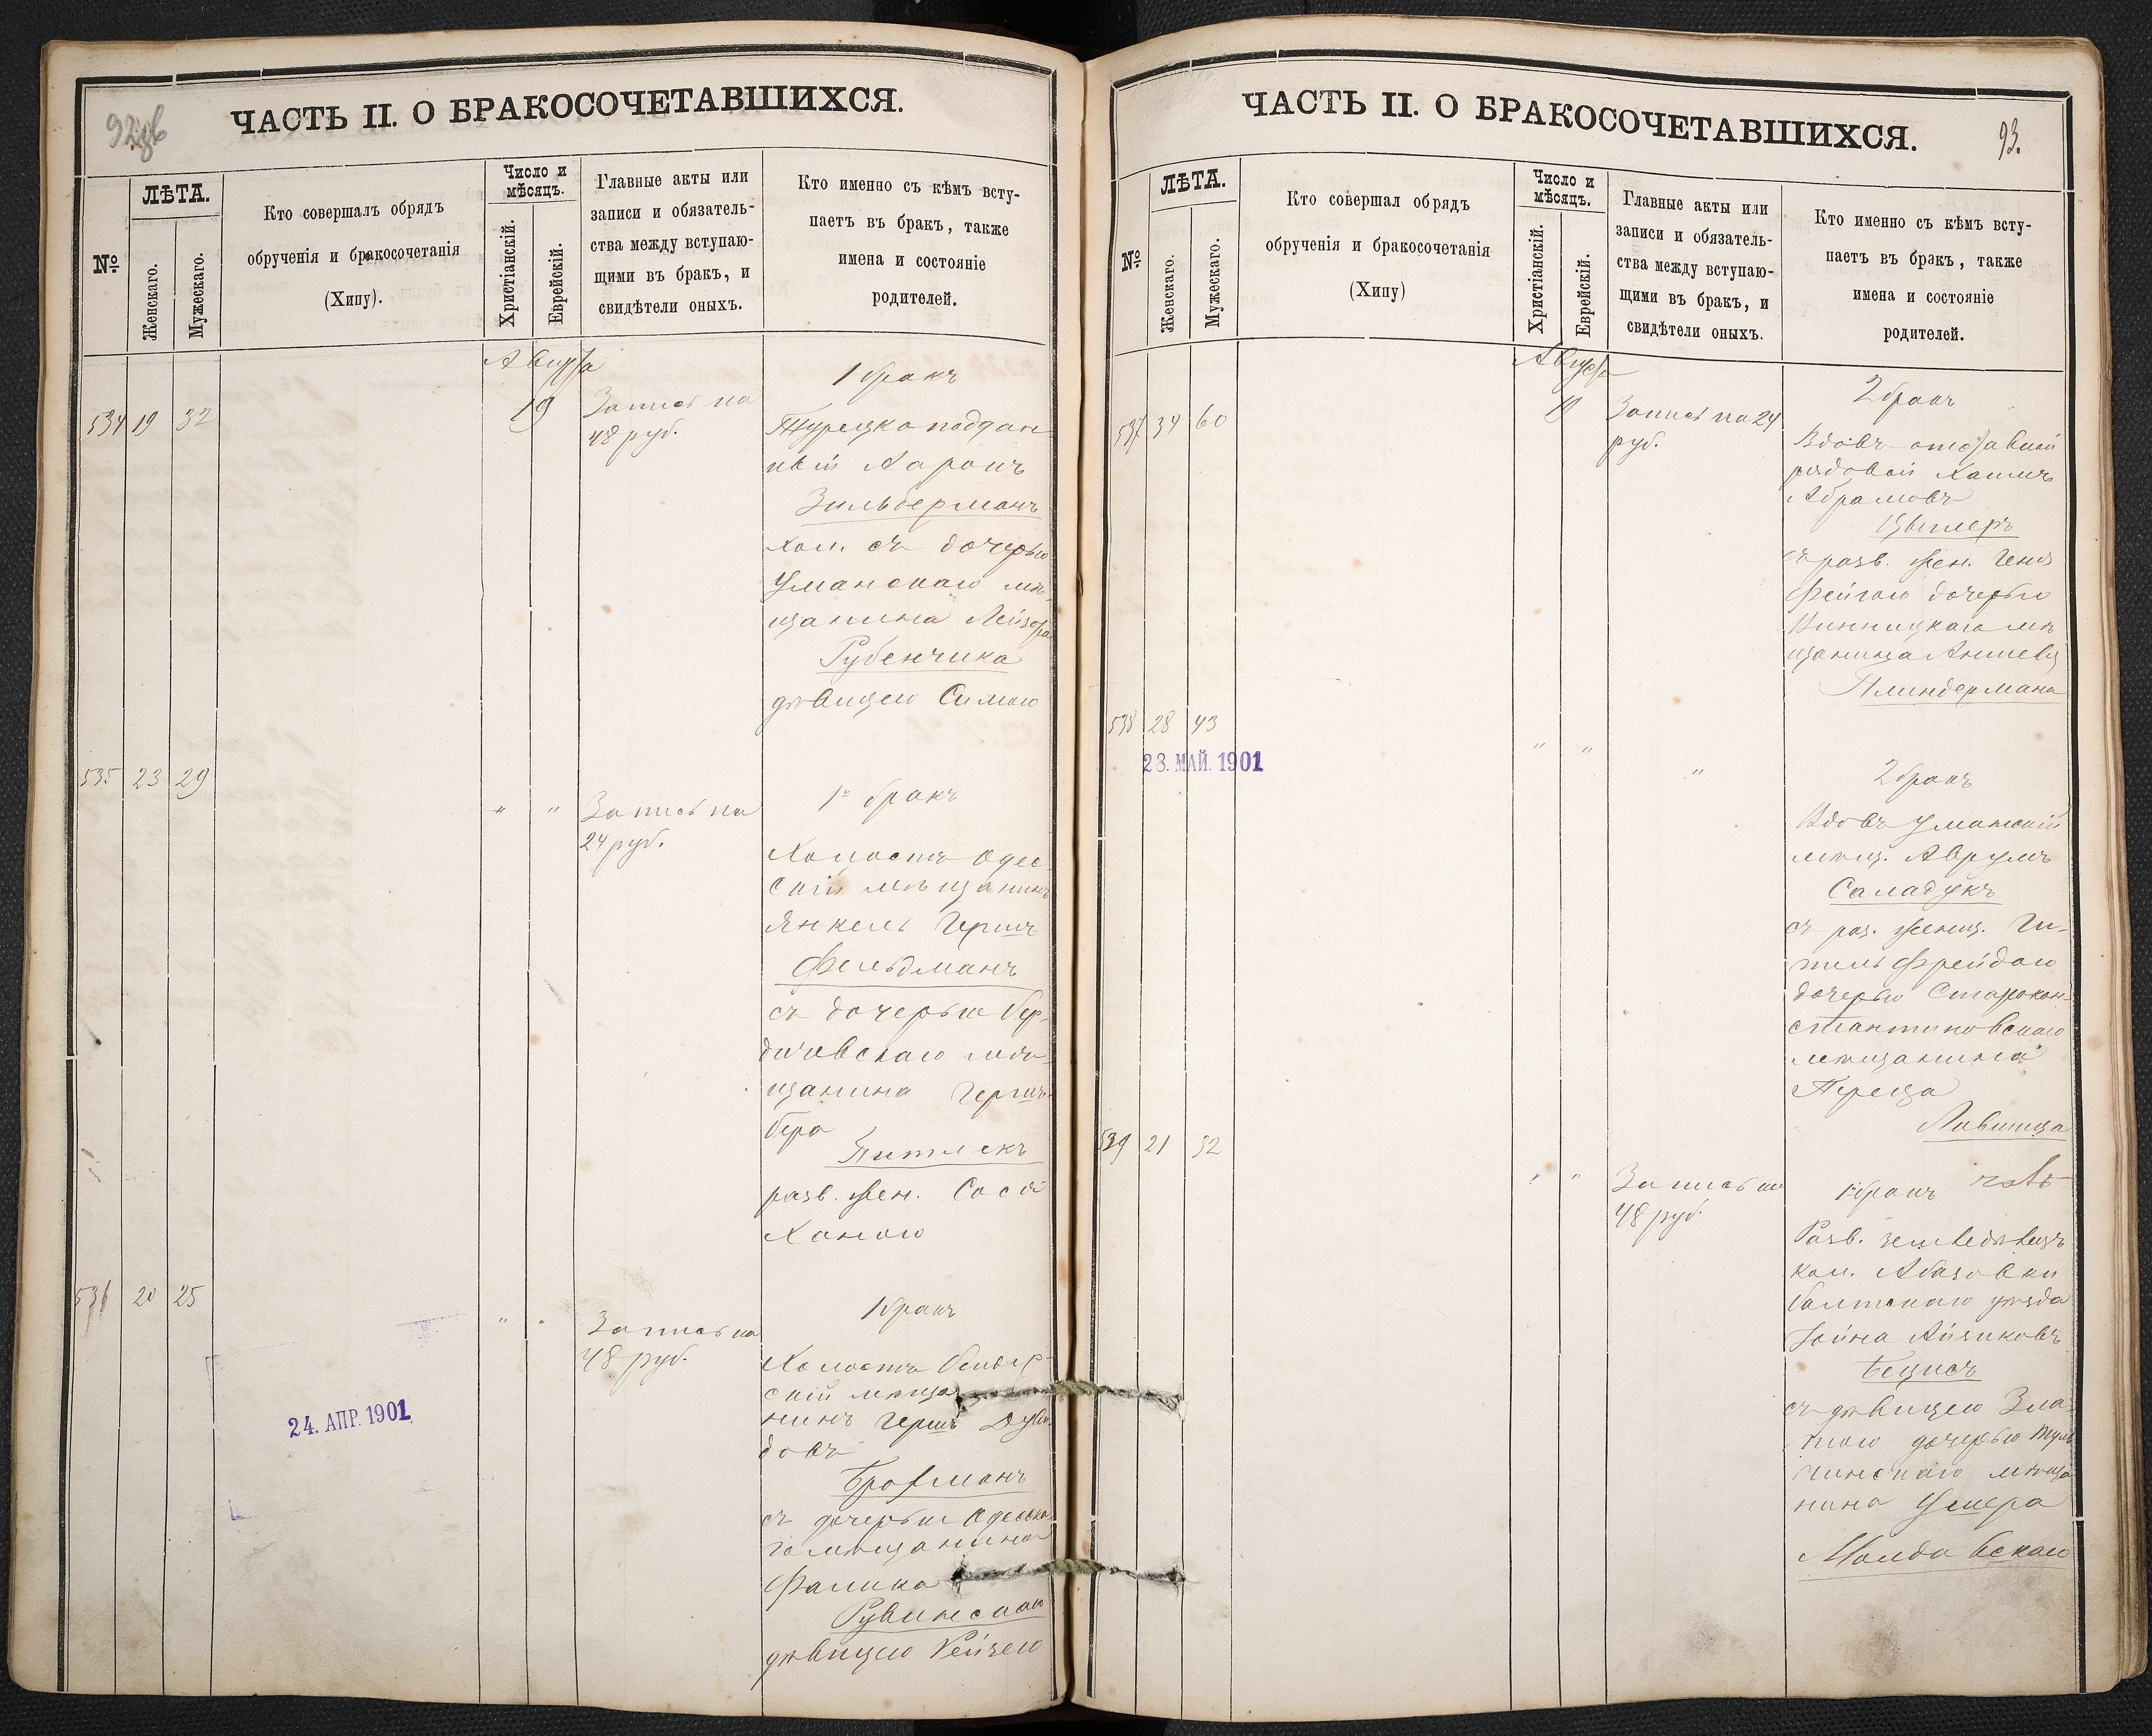 ЧАСТЬ II. О БРАКОСОЧЕТАВШИХСЯ.
№
ЛѢТА.
Женскаго.
Мужескаго.
Кто совершалъ обрядъ
обрученія и бракосочетанія
(Хипу).
Число и
мѣсяцъ.
Христіанскій.
Еврейскій.
Главные акты или
записи и обязатель-
ства между вступаю-
щими въ бракъ, и
свидѣтели оныхъ.
Кто именно съ кѣмъ всту-
паетъ въ бракъ, также
имена и состояніе
родителей.
Августа
534 19 32
19
Запись на
48 руб.
1 бракъ
Турецкоподдан
ный Аронъ
Зильберманъ
хол. съ дочерью
Уманскаго мѣ-
щанина Лейзера
Рубенчика
дѣвицею Симою
535 23 29
" "
Запись на
24 руб.
1й бракъ
Холостъ Одес
скій мѣщанинъ
Янкель Гершъ
Фельдманъ
съ дочерью Бер-
дичевскаго мѣ-
щанина Гершъ
Бера
разв. жен. Сося
Ханою
536 20 25
" "
Запись на
48 руб.
1 бракъ
Холостъ Бендер-
скій мѣща
нинъ Гершъ Дуви-
довъ
Брофманъ
съ дочерью Одесска
го мѣщанина
Фалика
Рувинскаго
дѣвицею Рейзею
24. АПР. 1901
ЧАСТЬ II. О БРАКОСОЧЕТАВШИХСЯ.
93.
№
ЛѢТА.
Женскаго.
Мужескаго.
Кто совершал обрядъ
обрученія и бракосочетанія
(Хипу)
Число и
мѣсяцъ.
Христіанскій.
Еврейскій.
Главные акты или
записи и обязатель-
ства между вступаю-
щими въ бракъ, и
свидѣтели оныхъ.
Кто именно съ кѣмъ всту-
паетъ въ бракъ, также
имена и состояніе
родителей.
Августа
537 34 60
19
Запись на 24
руб.
2 бракъ
Вдовъ отставной
рядовой Хаимъ
Абрамовъ
съ разв. жен. Геня
Фейгою дочерью
Винницкаго мѣ
щанина Аншеля
Плиндермана
538 28 43
28. МАЙ. 1901
" "
"
2 бракъ
Вдовъ Уманскій
мѣщ. Аврумъ
Саладукъ
съ раз. женщ. Ги-
тль Фрейдою
дочерью Старокон-
стантиновскаго
мѣщанина
Переца
Лившица
539 21 32
" "
Запись на
48 руб.
1й бракъ
Разв. земледѣлецъ
кол. Абазовки
Балтскаго уѣзда
Іойна Айзиковъ
Бецисъ
съ дѣвицею Зла-
тою дочерью Туль
чинскаго мѣща
нина Ушера
Молдавскаго